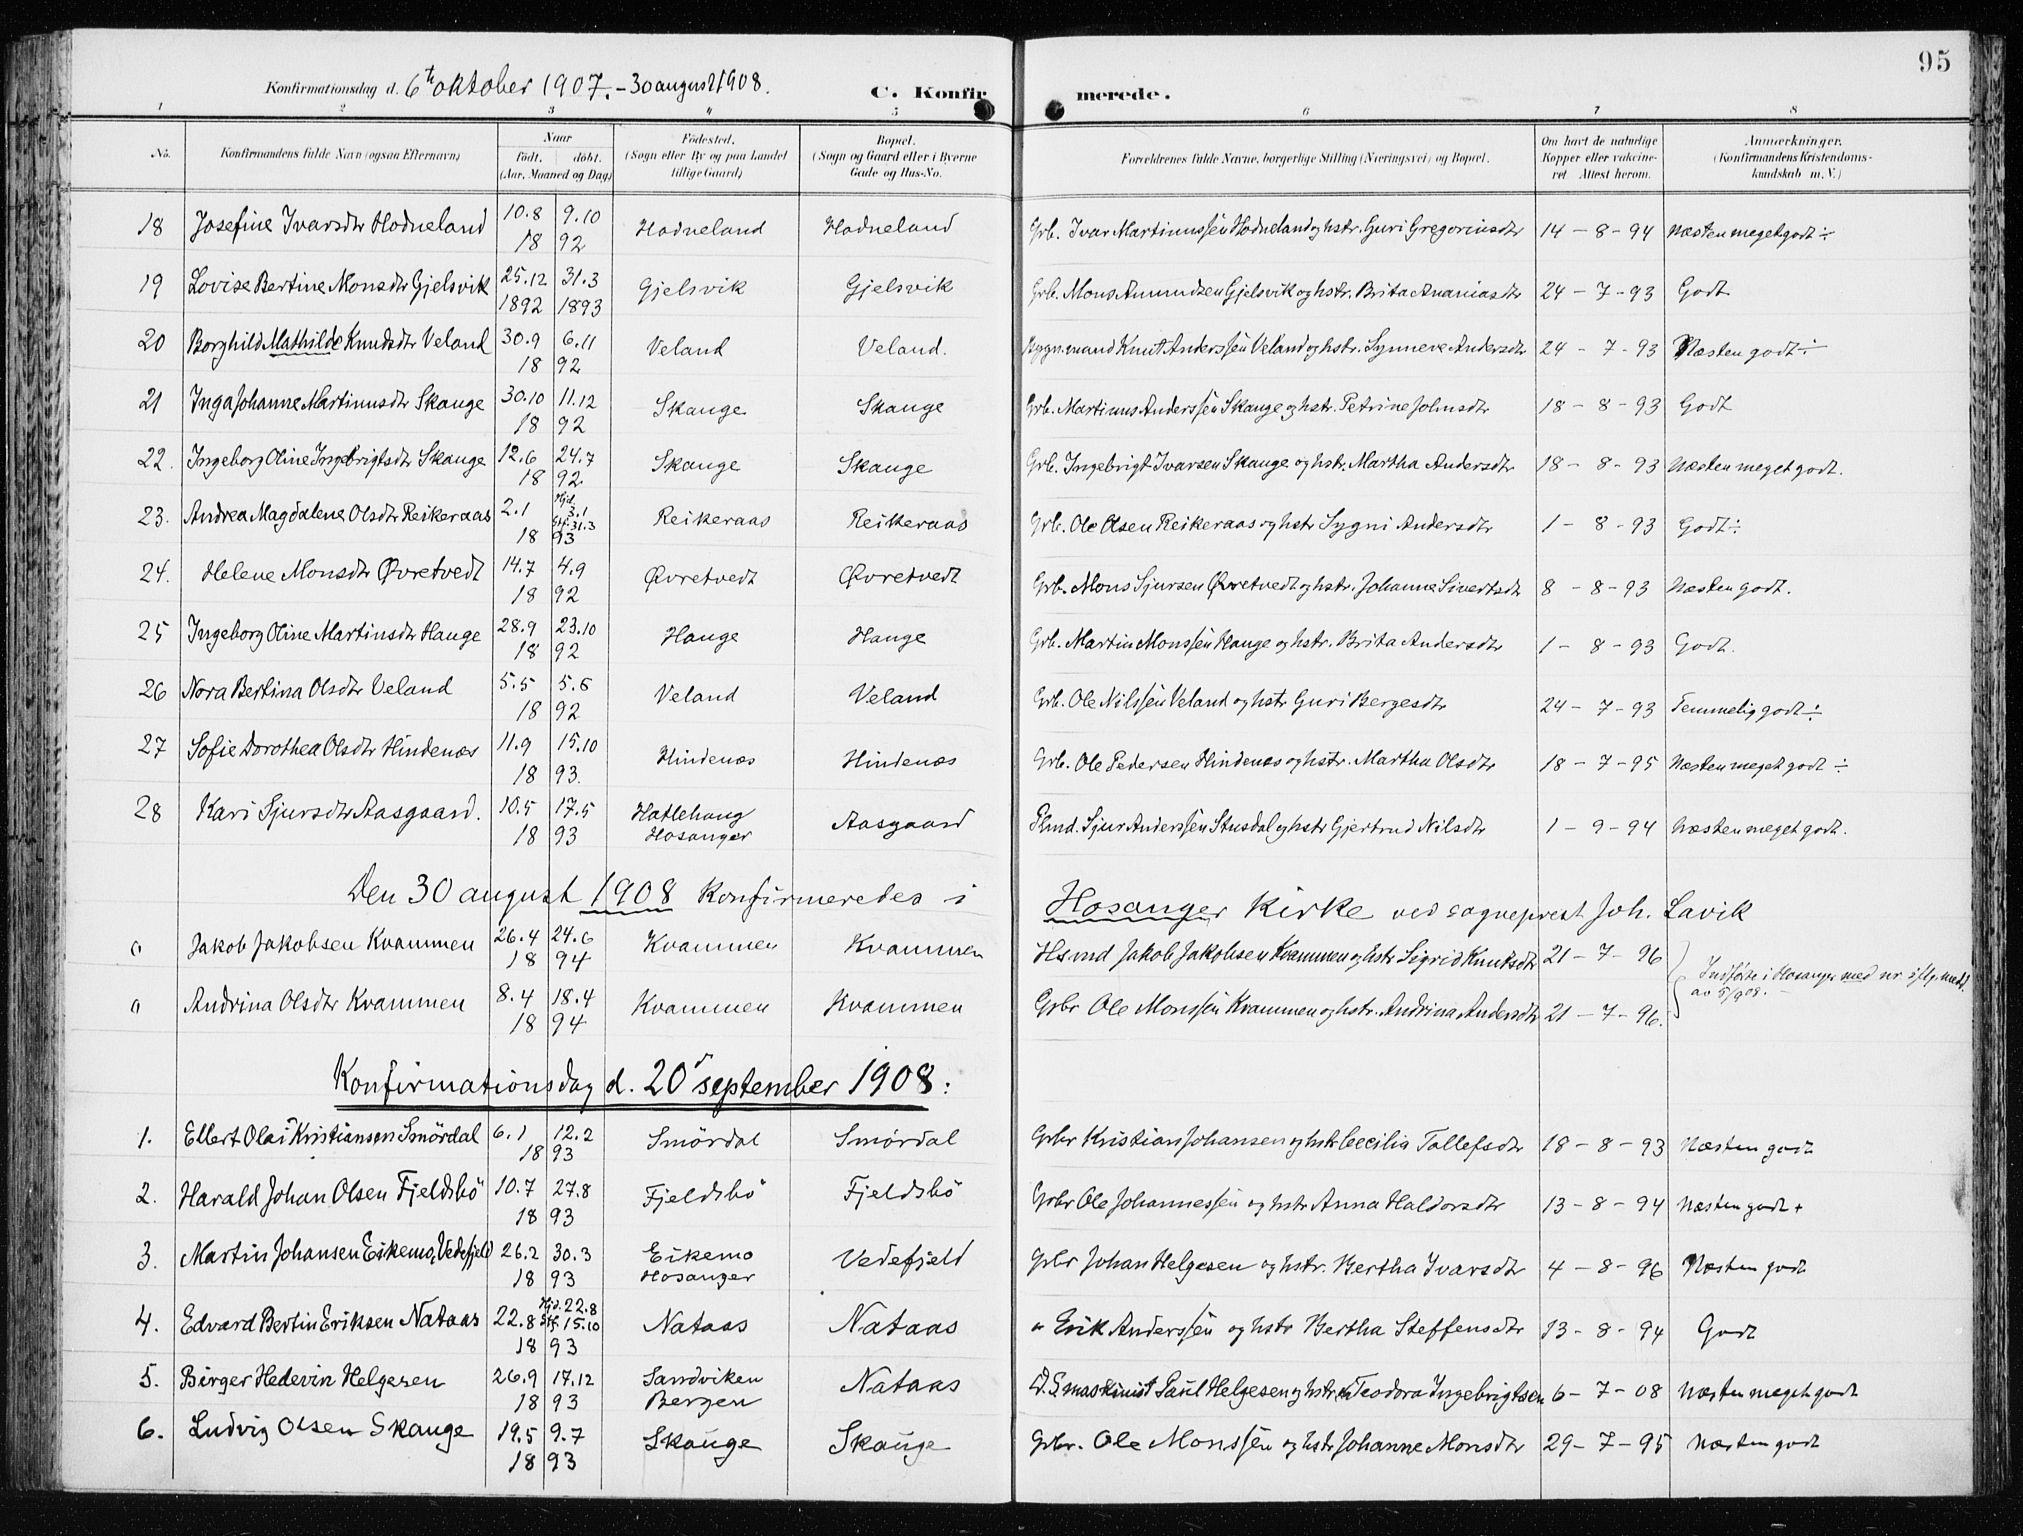 95
Konfirmationsdag d. 6th oktober 1907. - 30 august 1908. C. Konfirmerede.
1 2 3 4 5 6 7 8
No. Konfirmandens fulde Navn (ogsaa Efternavn) Naar født. døbt. (Aar, Maaned og Dag) Fødested. (Sogn eller By og paa Landet tillige Gaard) Bopæl. (Sogn og Gaard eller i Byerne Gade og Hus-No. Forældrenes fulde Navne, borgerlige Stilling (Næringsvei) og Bopæl. Om havt de naturlige Kopper eller vakcineret Attest herom. Anmærkninger. (Konfirmandens Kristendomskundskab m. V.)
18 Josefine Ivarsdtr Hodneland 10.8 9.10 1892 Hodneland Hodneland Grb. Ivar Martinussen Hodneland og hstr. Guri Gregoriusdtr 14 - 8 - 94 Næsten meget godt ÷
19 Lovise Bertine Monsdtr Gjelsvik 25.12 1892 31.3 1893 Gjelsvik Gjelsvik Grb. Mons Amundsen Gjelsvik og hstr. Brita Ananiasdtr 24 - 7 - 93 Godt
20 Borghild Mathilde Knudsdtr Veland 30.9 6.11 1892 Veland Veland. Bygn.mand Knut Anderssen Veland og hstr. Synneve Andersdtr 24 - 7 - 93 Næsten godt ÷
21 Inga Johanne Martinusdtr Skauge 30.10 11.12 1892 Skauge Skauge Grb. Martinus Anderssen Skauge og hstr. Petrine Johnsdtr 18 - 8 - 93 Godt
22. Ingeborg Oline Ingebrigtsdtr Skauge 12.6 24.7 1892 Skauge Skauge Grb. Ingebrigt Ivarsen Skauge og hstr. Martha Andersdtr 18 - 8 - 93 Næsten meget godt.
23. Andrea Magdalene Olsdtr Reikeraas 2.1 Hjd. 3.1 Stf. 31.3 1893 Reikeraas Reikeraas Grb. Ole Olsen Reikeraas og hstr Sygni Andersdtr 1 - 8 - 93 Godt ÷
24. Helene Monsdtr Øvretvedt 14.7 4.9 1892 Øvretvedt Øvretvedt Grb. Mons Sjursen Øvretvedt og hstr. Johanne Sivertsdtr 8 - 8 - 93 Næsten godt.
25 Ingeborg Oline Martinsdtr Hauge 28.9 23.10 1892 Hauge Hauge Grb. Martin Monssen Hauge og hstr. Brita Andersdtr 1 - 8 - 93 Godt.
26 Nora Bertina Olsdtr Veland 5.5 5.6 1892 Veland Veland Grb. Ole Nilssen Veland og hstr Guri Bergesdtr 24 - 7 - 93 Temmelig godt ÷
27 Sofie Dorothea Olsdtr Hindenæs 11.9 15.10 1893. Hindenæs Hindenæs Grb. Ole Pedersen Hindenæs og hstr. Martha Olsdtr 18 - 7 - 95 Næsten meget godt ÷
28 Kari Sjursdtr Aasgaard. 10.5 17.5 1893 Hatlehaug Hosanger Aasgaard Plmd. Sjur Anderssen Stusdal og hstr Gjertrud Nilsdtr 1 - 9 - 94 Næsten meget godt.
Den 30 august 1908 konfirmeredes i Hosanger kirke ved sogneprest Joh. Lavik
0 Jakob Jakobsen Kvammen 26.4 24.6 1894 Kvammen Kvammen Hsmd Jakob Jakobsen Kvammen og hstr Sigrid Knutsdtr 21 - 7 - 96 Indførte i Hosanger med nr iflg. medd. av 5/9 08.
0 Andrina Olsdtr Kvammen 8.4 18.4 1894 Kvammen Kvammen Grbr Ole Monssen Kvammen og hstr. Andrina Andersdtr 21 - 7 - 96.
Konfirmationsdag d. 20d september 1908:
1. Ellert Olai Kristiansen Smördal 6.1 12.2 1893 Smördal Smördal Grbr Kristian Johansen og hstr Cecilia Tollefsdtr 18 - 8 - 93 Næsten godt
2. Harald Johan Olsen Fjeldsbö 10.7 27.8 1893 Fjeldsbö Fjeldsbö Grbr Ole Johannessen og hstr Anna Haldorsdtr 13 - 8 - 94 Næsten godt +
3. Martin Johansen Eikemo, Vedefjeld 26.2 30.3 1893 Eikemo Hosanger Vedefjeld Grbr Johan Helgesen og hstr. Bertha Ivarsdtr 4 - 8 - 96 Næsten godt
4. Edvard Bertin Eriksen Nataas 22.8 Hjd. 22.8 Stf. 15.10 1893 Nataas Nataas " Erik Anderssen og hstr Bertha Steffensdtr 13 - 8 - 94 Godt
5. Birger Hedevin Helgesen 26.9 17.12 1893 Sandviken Bergen Nataas D.S maskinist Paul Helgesen og hstr. Teodora Ingebrigtsen 6 - 7 - 08 Næsten meget godt
6. Ludvig Olsen Skauge 19.5 9.7 1893 Skauge Skauge Grbr. Ole Monssen og hstr Johanne Monsdtr 29 - 7 - 95 Næsten godt